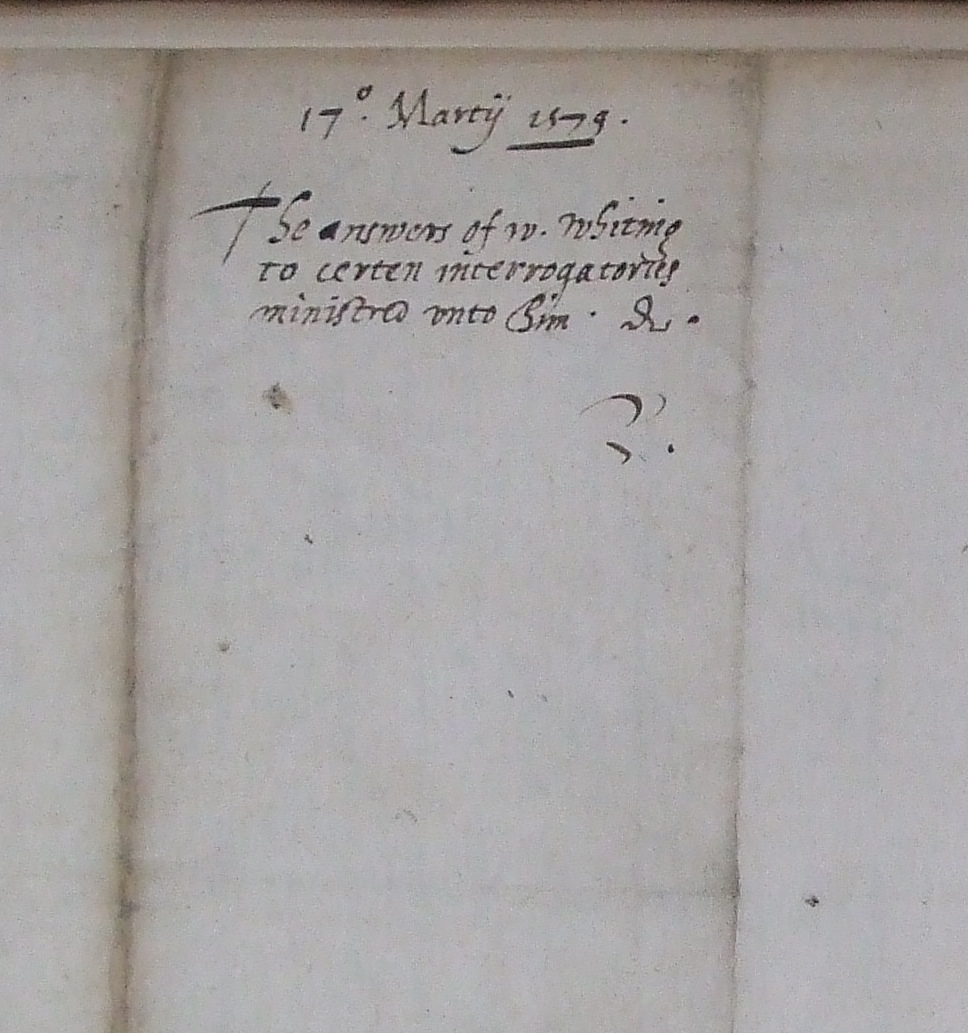 17º. Martij 1579.
The answers of w. Whiting
to certen interrogatories
ministred vnto him . &c .